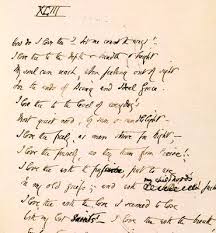 XLIII
How do I love thee? Let me count the ways!
I love thee to the depth & breadth & height
My soul can reach, when feeling out of sight
For the ends of Being and Ideal Grace.
I love thee to the level of everyday's
Most quiet need, by sun & candlelight –
I love thee freely, as men strive for Right, –
I love thee purely, as they turn from Praise!
I love thee with the passion, put to use
In my old griefs, .. and with my childhood's faith
I love thee with the love I seemed to lose
With my lost Saints! – I love thee with the breath